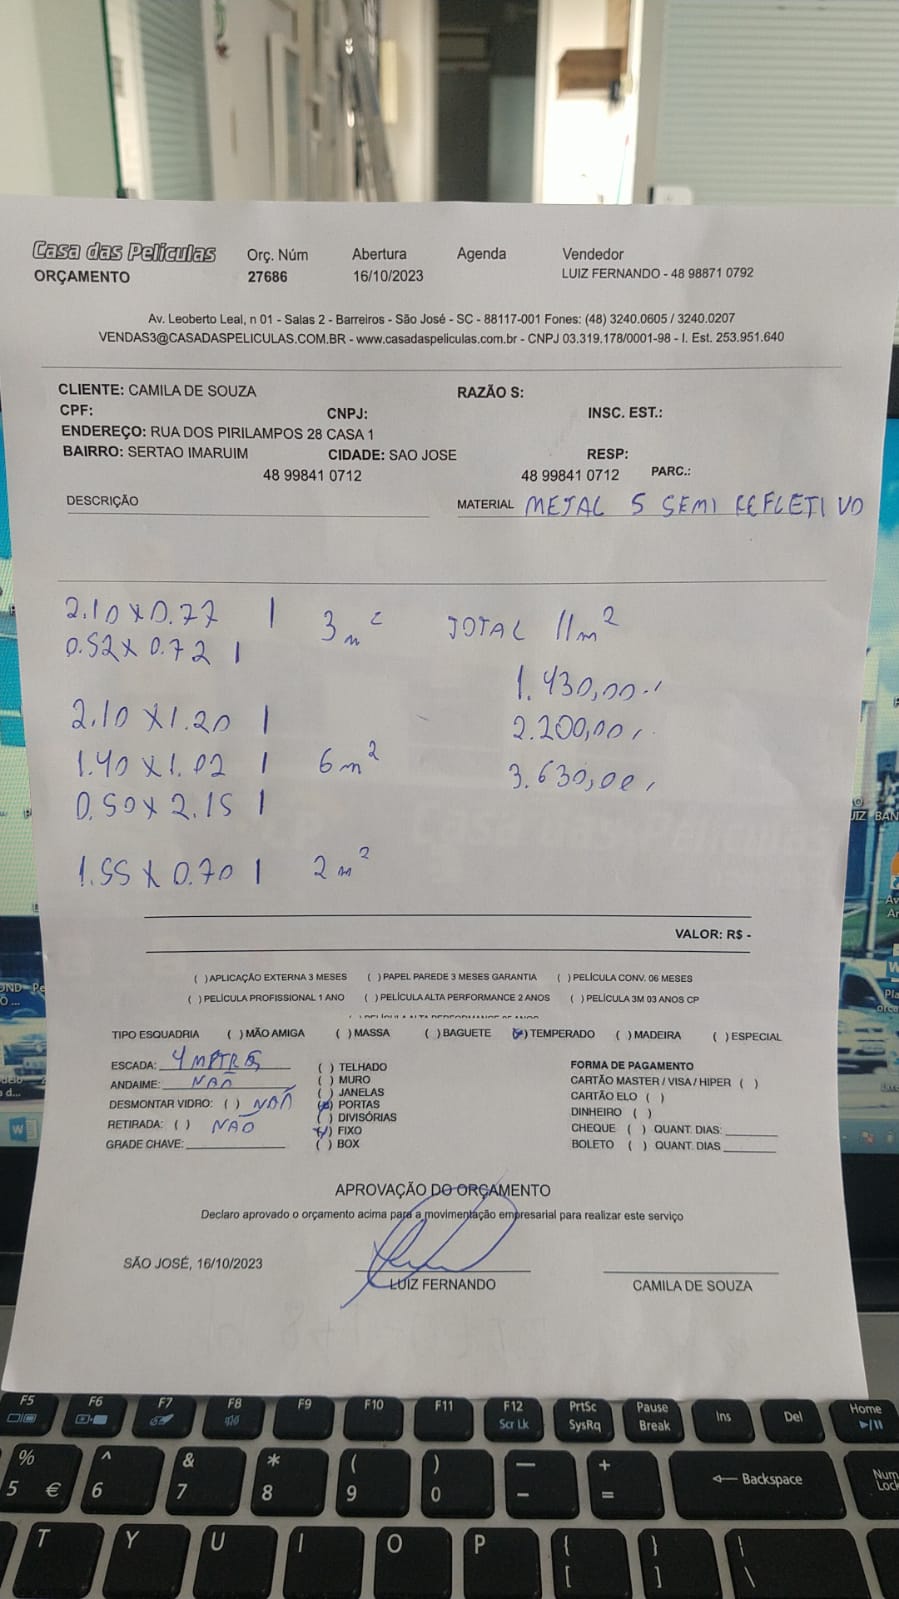 Casa das Películas Orç. Núm Abertura Agenda Vendedor
ORÇAMENTO 27686 16/10/2023 LUIZ FERNANDO - 48 98871 0792
Av. Leoberto Leal, n 01 - Salas 2 - Barreiros - São José - SC - 88117-001 Fones: (48) 3240.0605 / 3240.0207
VENDAS3@CASADASPELICULAS.COM.BR - www.casadaspeliculas.com.br - CNPJ 03.319.178/0001-98 - I. Est. 253.951.640
CLIENTE: CAMILA DE SOUZA RAZÃO S:
CPF: CNPJ: INSC. EST.:
ENDEREÇO: RUA DOS PIRILAMPOS 28 CASA 1
BAIRRO: SERTAO IMARUIM CIDADE: SAO JOSE RESP:
48 99841 0712 48 99841 0712 PARC.:
DESCRIÇÃO MATERIAL METAL 5 SEMI REFLETIVO
2.10 x 0.77 1 3m² TOTAL 11m²
0.52 x 0.72 1
1.430,00
2.10 x 1.20 1 2.200,00
1.40 x 1.02 1 6m² 3.630,00
0.50 x 2.15 1
1.55 x 0.70 1 2m²
VALOR: R$ -
( ) APLICAÇÃO EXTERNA 3 MESES ( ) PAPEL PAREDE 3 MESES GARANTIA ( ) PELÍCULA CONV. 06 MESES
( ) PELÍCULA PROFISSIONAL 1 ANO ( ) PELÍCULA ALTA PERFORMANCE 2 ANOS ( ) PELÍCULA 3M 03 ANOS CP
TIPO ESQUADRIA ( ) MÃO AMIGA ( ) MASSA ( ) BAGUETE (x) TEMPERADO ( ) MADEIRA ( ) ESPECIAL
ESCADA: 4 METROS ( ) TELHADO FORMA DE PAGAMENTO
ANDAIME: NAÕ ( ) MURO CARTÃO MASTER / VISA / HIPER ( )
( ) JANELAS CARTÃO ELO ( )
DESMONTAR VIDRO: ( ) NAÕ (x) PORTAS DINHEIRO ( )
RETIRADA: ( ) NAO ( ) DIVISÓRIAS CHEQUE ( ) QUANT. DIAS:
(x) FIXO
GRADE CHAVE: ( ) BOX BOLETO ( ) QUANT. DIAS
APROVAÇÃO DO ORÇAMENTO
Declaro aprovado o orçamento acima para a movimentação empresarial para realizar este serviço
SÃO JOSÉ, 16/10/2023
LUIZ FERNANDO CAMILA DE SOUZA
F5 F6 F7 F8 F9 F10 F11 F12 PrtSc Pause Ins Del Home
Scr Lk SysRq Break
% ^ & * ( ) — + Backspace Num
5 € 6 7 8 9 0 - = Lock
T Y U I O P { } |
[ ] \